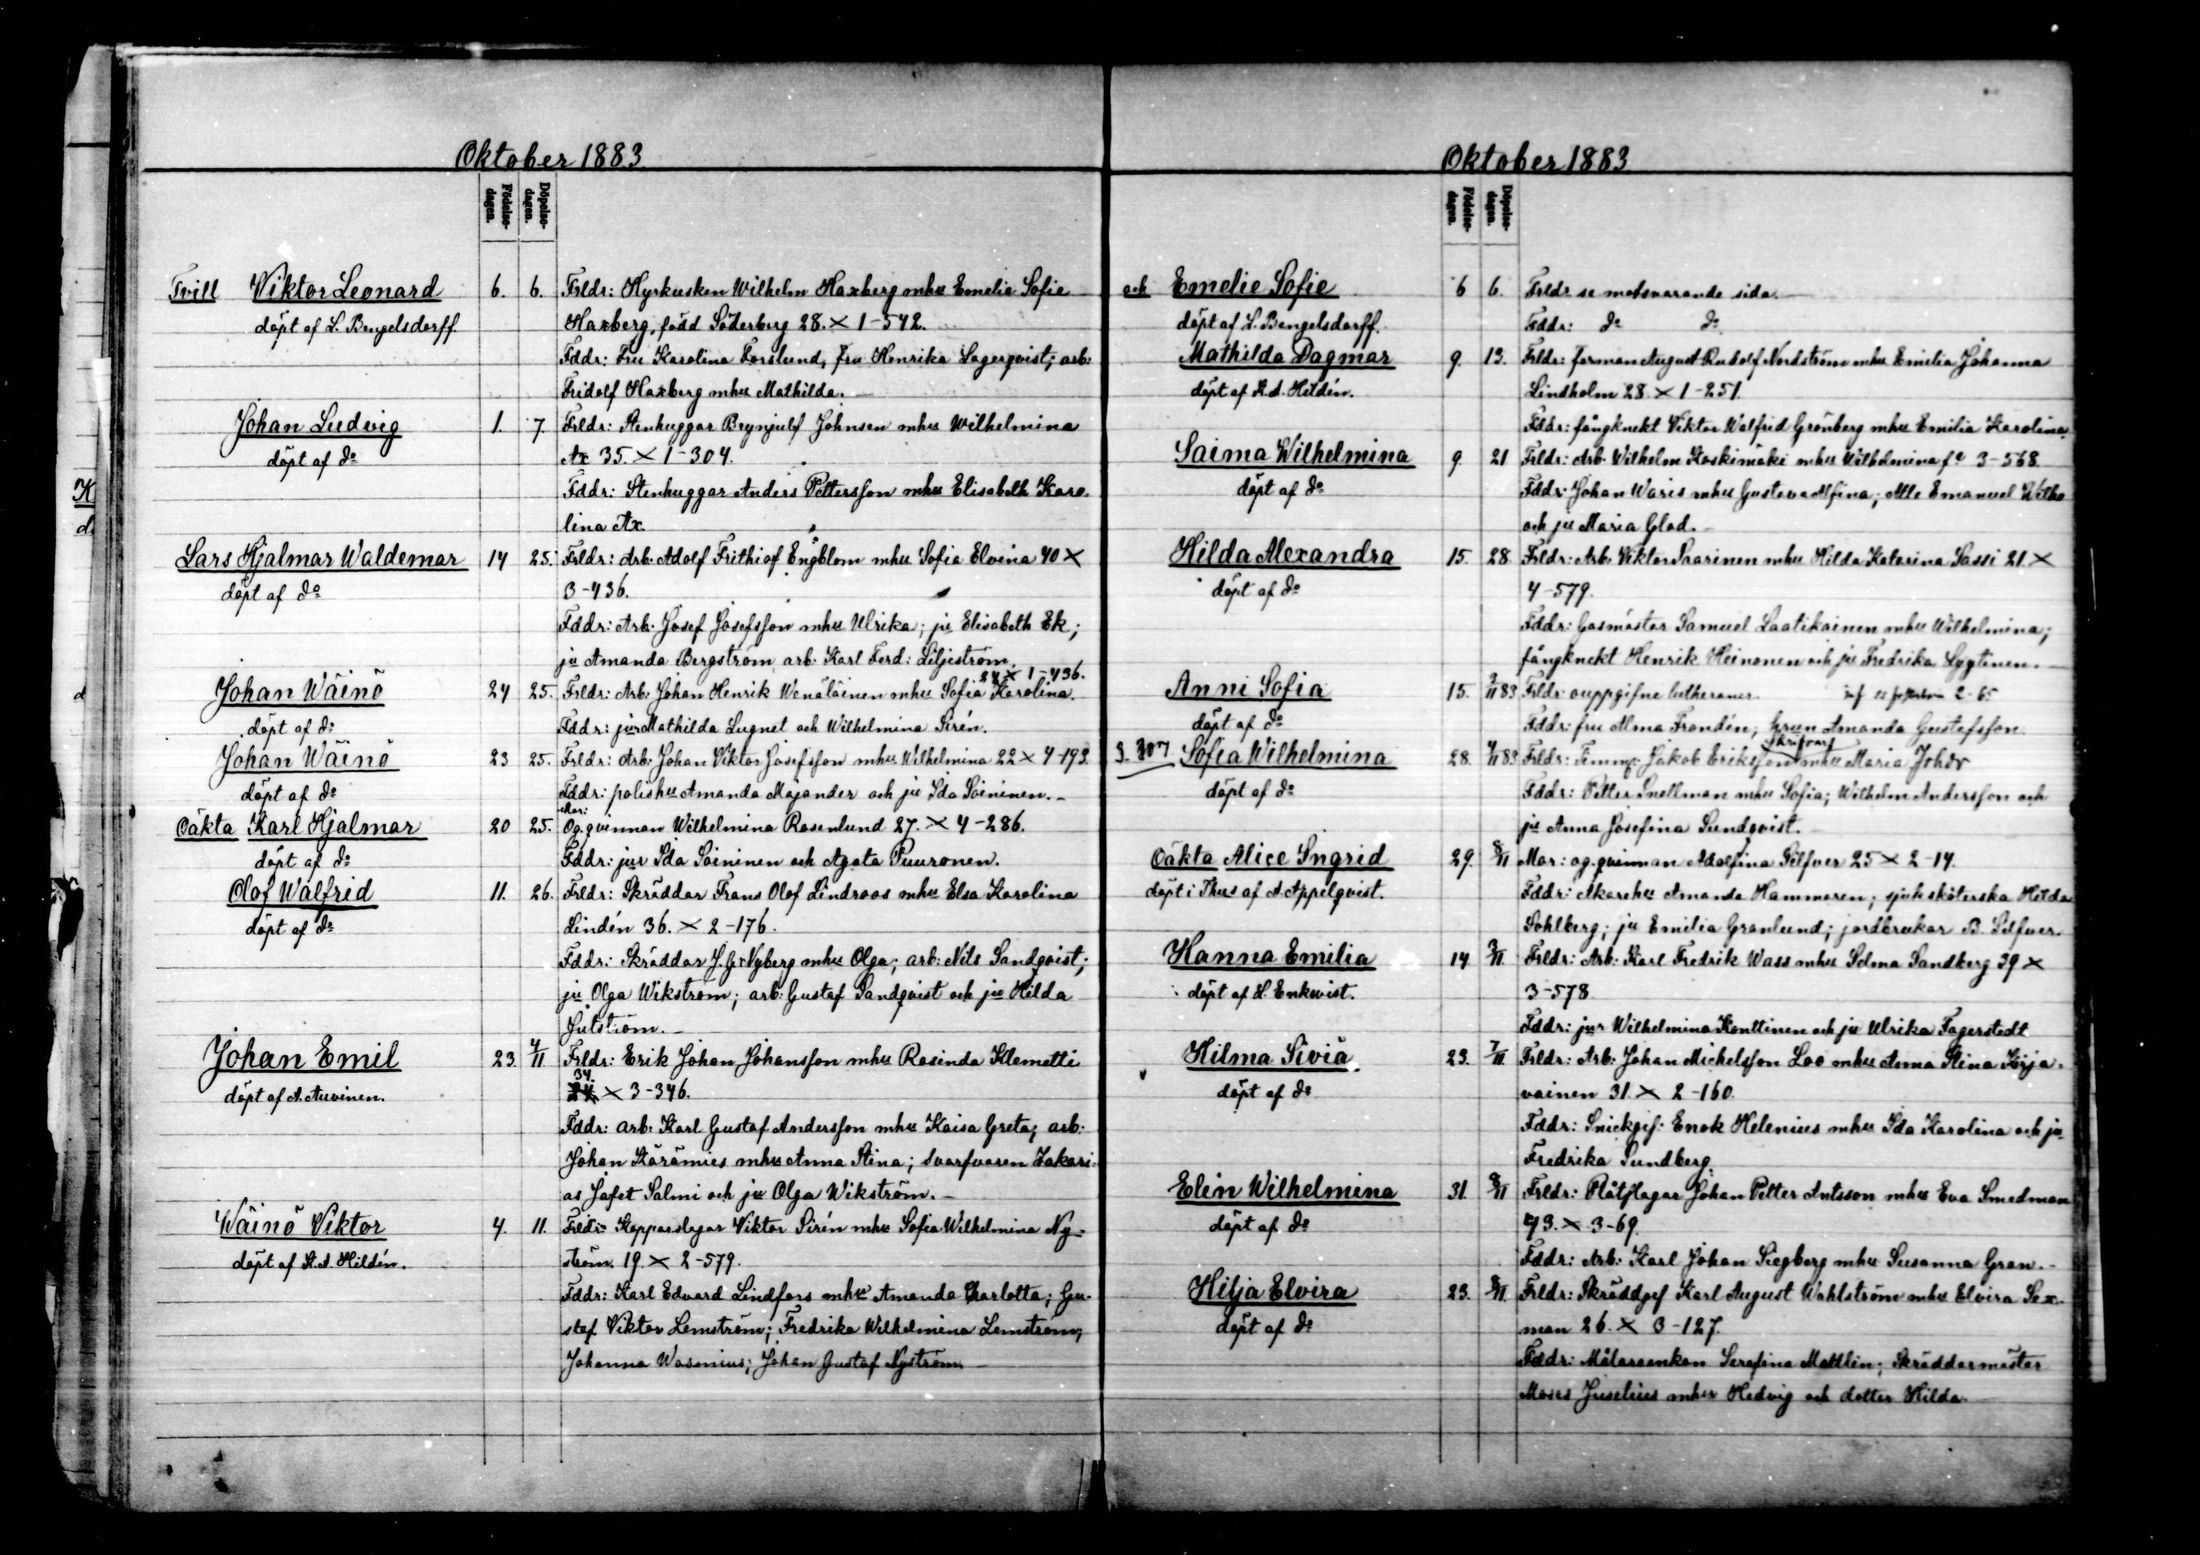 Oktober 1883
Födelse-dagen. Döpelse-dagen.
Tvill Viktor Leonard 6. 6. Frldr: Hyrkusken Wilhelm Haxberg mhu Emelie Sofie
döpt af L. Bengelsdorff Haxberg, född Söderberg 28. × 1-542.
Fddr: Fru Karolina Forslund, fru Henrika Lagerqvist; arb:
Fridolf Haxberg mhu Mathilda.
Johan Ludvig 1. 7. Frldr: Stenhuggar Brynjulf Johnsen mhu Wilhelmina
döpt af do Ax 35. × 1-304.
Fddr: Stenhuggar Anders Pettersson mhu Elisabeth Karo-
lina Ax.
Lars Hjalmar Waldemar 14 25. Frldr: Arb. Adolf Frithiof Engblom mhu Sofia Elvina 40 ×
döpt af do 3-436.
Fddr: Arb. Josef Josefsson mhu Ulrika; ju Elisabeth Ek;
ju Amanda Bergström, arb: Karl Ferd: Liljeström.
24 × 1-436.
Johan Wäinö 24 25. Frldr: Arb: Johan Henrik Wenäläinen mhu Sofia Karolina.
döpt af do Fddr: jur Mathilda Lugnet och Wilhelmina Sirén.
Johan Wäinö 23 25. Frldr: Arb: Johan Viktor Josefsson mhu Wilhelmina 22 × 4-193.
döpt af do Fddr: polishu Amanda Majander och ju Ida Soininen.-
Mor:
Oäkta Karl Hjalmar 20 25. Og. qvinnan Wilhelmina Rosenlund 27. × 4-286.
döpt af do Fddr: jur Ida Soininen och Agata Puuronen.
Olof Walfrid 11. 26. Frldr: Skräddar Frans Olof Lindroos mhu Elsa Karolina
döpt af do Lindén 36. × 2-176.
Fddr: Skräddar J. G. Nyberg mhu Olga; arb: Nils Sandqvist;
ju Olga Wikström; arb: Gustaf Sandqvist och ju Hilda
Jutström.-
Johan Emil 23. 4/11 Frldr: Erik Johan Johansson mhu Rosinda Klemetti
döpt af A. Auvinen. 34. × 3-346.
Fddr: arb: Karl Gustaf Andersson mhu Kaisa Greta; arb:
Johan Kärämies mhu Anna Stina; Svarfvaren Zakari-
as Jafet Salmi och ju Olga Wikström.-
Wäinö Viktor 4. 11. Frldr: Kopparslagar Viktor Sirén mhu Sofia Wilhelmina Ny-
döpt af K. A. Hildén. ström. 19 × 2-579.
Fddr: Karl Edvard Lindfors mhu Amanda Charlotta; Gu-
staf Viktor Lemström; Fredrika Wilhelmina Lemström;
Johanna Wasenius; Johan Gustaf Nyström.
Oktober 1883
Födelse-dagen. Döpelse-dagen.
och Emelie Sofie 6 6. Frldr se motsvarande sida.
döpt af L. Bengelsdorff. Fddr: do do
Mathilda Dagmar 9. 13. Frldr: forman August Rudolf Nordström mhu Emilia Johanna
döpt af K. A. Hildén. Lindholm 28. × 1-251.
Fddr: fångknekt Viktor Walfrid Grönberg mhu Emilia Karolina
Saima Wilhelmina 9. 21 Frldr: Arb. Wilhelm Koskimäki mhu Wilhelmina 3-568.
döpt af do Fddr: Johan Waris mhu Gustava Alfina; Emanuel
och ju Maria Glad.-
Hilda Alexandra 15. 28 Frldr: Arb. Viktor Saarinen mhu Hilda Katarina Sassi 21. ×
döpt af do 4-579.
Fddr: Gasmästar Samuel Laatikainen mhu Wilhelmina;
fångknekt Henrik Heinonen och ju Fredrika Lyytinen.
Anni Sofia 15. 3/11 83 Frldr: ouppgifne lutheraner. 2-65
döpt af do Fddr: fru Alma Frondén; Amanda Gustafsson.
Skrifvarf
3-307 Sofia Wilhelmina 28. 4/11 83 Frldr: Timmr Jakob Eriksson mhu Maria
döpt af do Fddr: Petter Snellman mhu Sofia; Wilhelm Andersson och
ju Anna Josefina Sundqvist.
Oäkta Alice Ingrid 29. 8/11 Mor: og. qvinnan Adolfina Silfver 25 × 2-14.
döpt i Thus af A. Appelqvist. Fddr: Akarehu Amanda Hammaren; sjuksköterska Hilda
Sohlberg; ju Emilia Granlund; jordbrukar B. Silfver.
Hanna Emilia 14 3/11. Frldr: Arb: Karl Fredrik Wass mhu Selma Sandberg 39 ×
döpt af H. Enkvist. 3-578
Fddr: jur Wilhelmina Konttinen och ju Ulrika Fagerstedt
Hilma Siviä 23. 7/11. Frldr: Arb: Johan Michelsson Loo mhu Anna Stina Kirja-
döpt af do vainen 31. × 2-160.
Fddr: Snickgif: Enok Helenius mhu Ida Karolina och ju
Fredrika Sundberg.
Elin Wilhelmina 31. 8/11 Frldr: Plåtslagar Johan Petter Antsson mhu Eva Smedman
döpt af do 43. × 3-69.
Fddr: Arb: Karl Johan Siegberg mhu Susanna Gran.-
Hilja Elvira 23. 8/11. Frldr: Skräddgif Karl August Wahlström mhu Elvira Sex-
döpt af do man 26. × 3-127.
Fddr: Målareenkan Serafina Mattlin; Skräddarmästar
Moses Juselius mhu Hedvig och dotter Hilda.